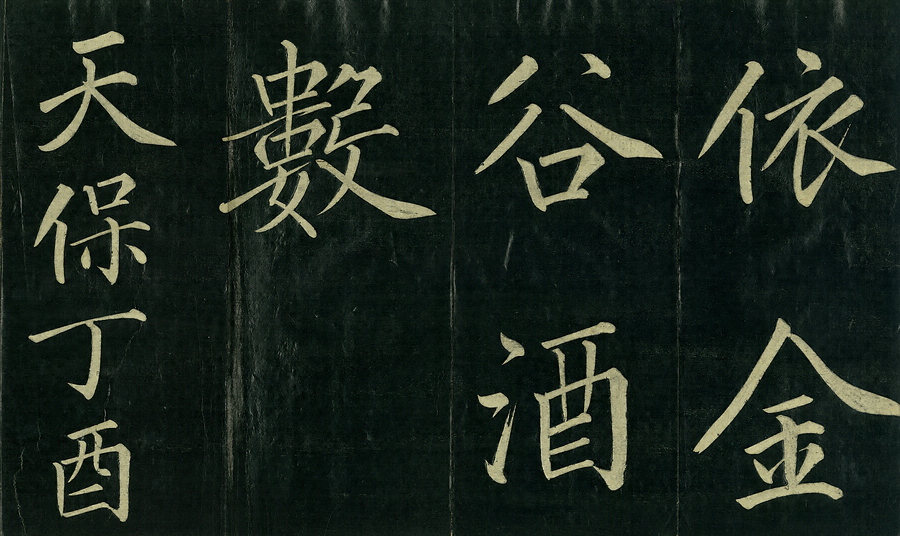 依金
谷酒
數
天保丁酉